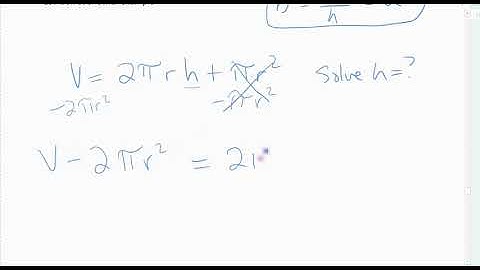 h
V = 2πrh + πr² Solve h=?
-2πr² -πr²
V - 2πr² = 2π